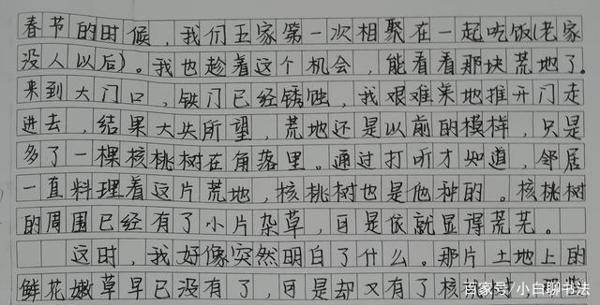 春节的时候，我们王家第一次相聚在一起吃饭(老家
没人以后)。我也趁着这个机会，能看看那块荒地了。
来到大门口，铁门已经锈蚀，我艰难某地推开门走
进去，结果大失所望，荒地还是以前的模样，只是
多了一棵核桃树在角落里。通过打听才知道，邻居
一直料理着这片荒地，核桃树也是他种的。核桃树
的周围已经有了小片杂草，可是依就显得荒芜。
这时，我好像突然明白了什么。那片土地上的
鲜花嫩草早已没有了，可是却又有了核
百家号/小白聊书法